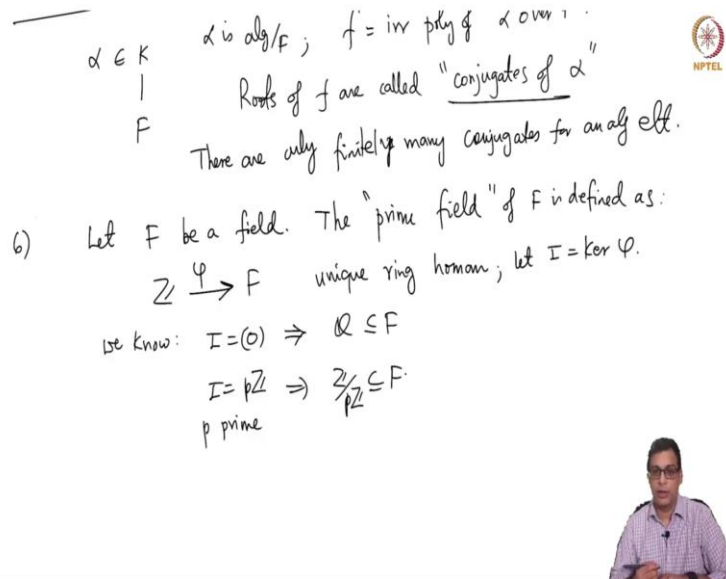 α is alg/F ; f = irr poly of α over
α ∈ K
|
F
Roots of f are called "conjugates of α"
There are only finitely many conjugates for an alg elt.
6) Let F be a field. The "prime field" of F is defined as:
ℤ →^φ F unique ring homom ; let I = ker φ.
We know: I = (0) ⇒ ℚ ⊆ F
I = pℤ ⇒ ℤ/pℤ ⊆ F.
p prime
NPTEL